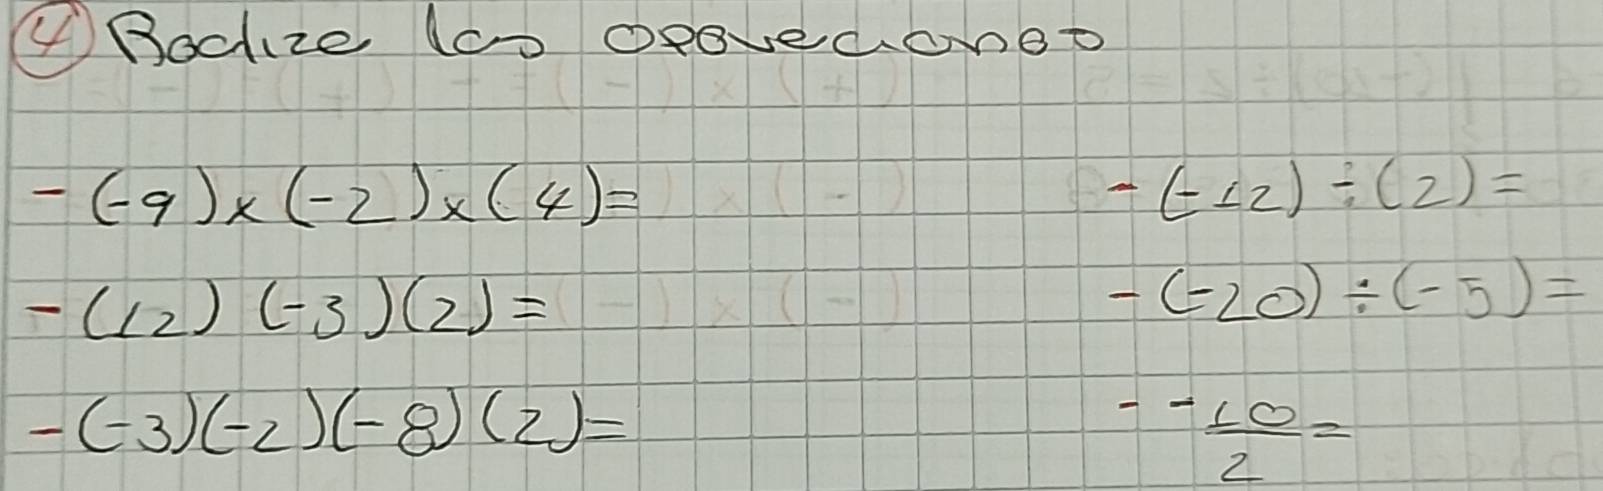 4 Realize las operaciones
- (-9)x(-2)x(4)=
- (12)(-3)(2)=
- (-3)(-2)(-8)(2)=
- (-12)÷(2)=
- (-20)÷(-5)=
- -10/2=